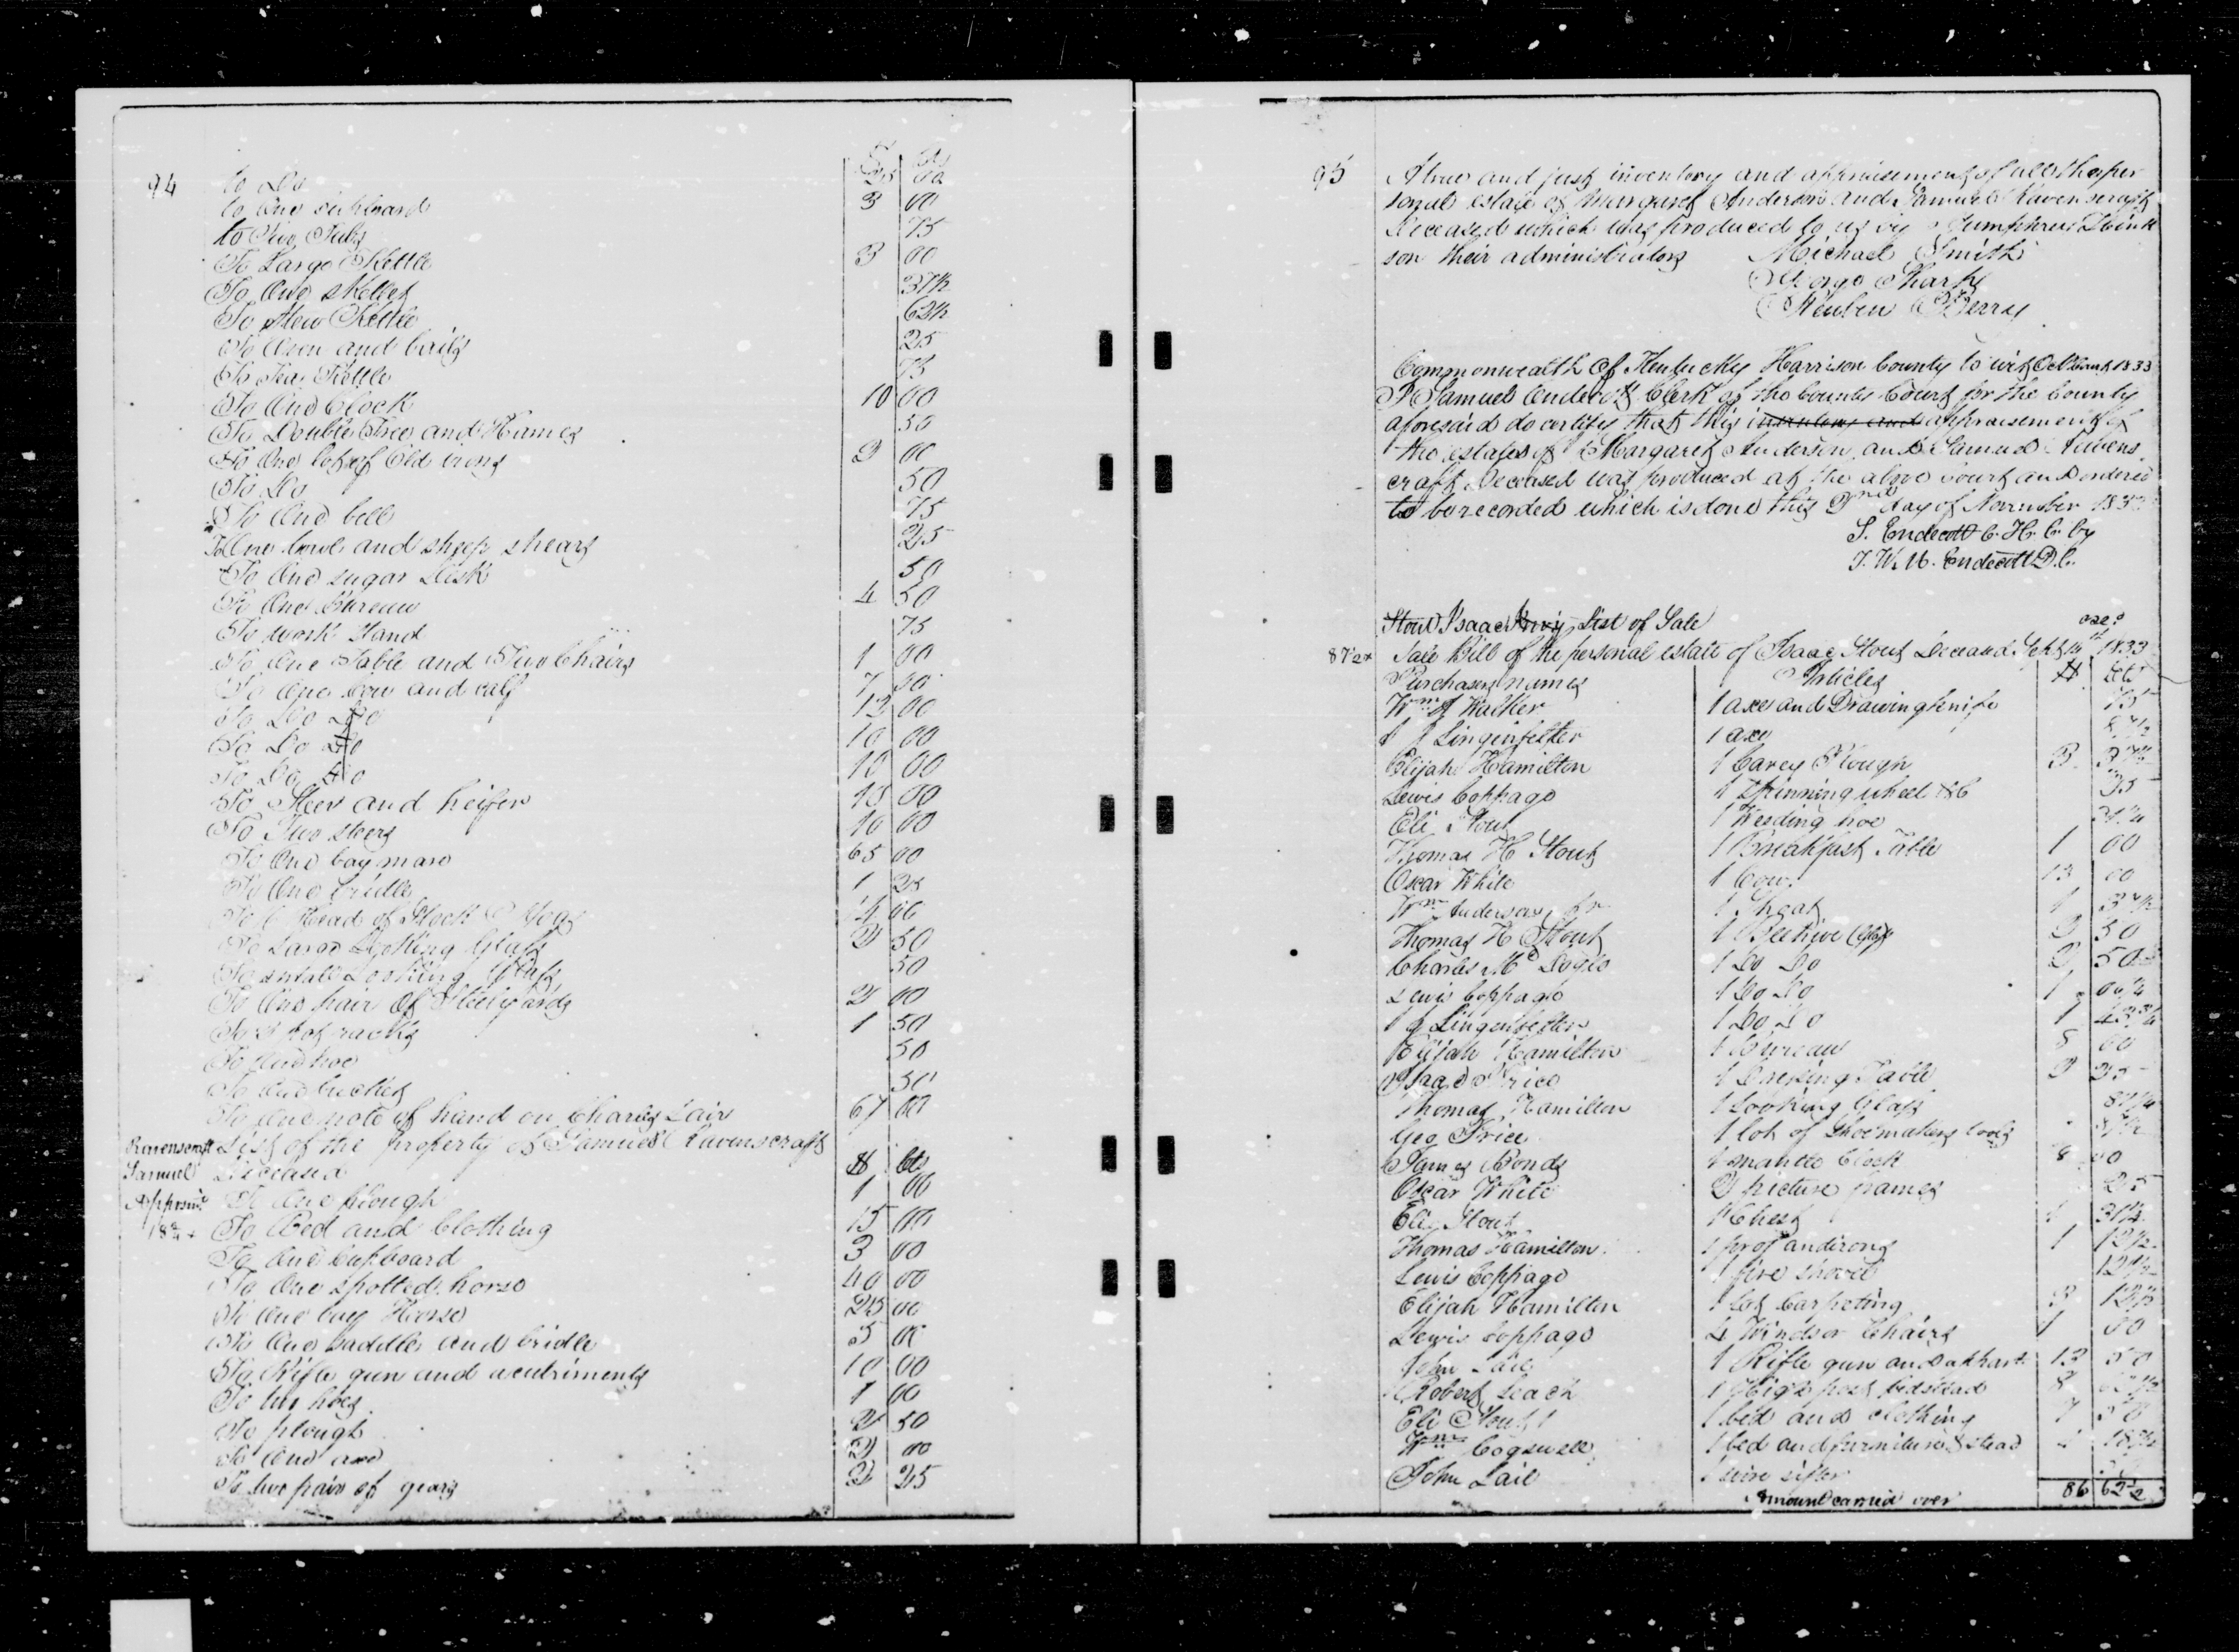 94
$ | Cts
to Do
to One cupboard 3 00
to Two Tubs 75
To Large Kettle 3 00
To One skillet 37½
To Stew Kettle 62½
To Oven and bails 25
To Tea Kettle 75
To One Clock 10 00
To Double Tree and Hames 50
To One lot of Old irons 2 00
To Do 50
To One bell 75
To One bowl and sheep shears 25
To One sugar Desk 50
To One Bureau 4 50
To work stand 75
To One Table and Two Chairs 1 00
To One Cow and calf 7 50
To Do Do 12 00
To Do Do 10 00
To Do Do 10 00
To Steer and heifer 10 00
To Two steers 10 00
To One bay mare 65 00
To One bridle 1 25
To Head of Stock Hogs 00
To Large Looking Glass 2 50
To small Looking Glass 50
To One pair Of Steelyards 2 00
To pot racks 1 50
To One hoe 50
To One bucket 50
To One note of hand on Charles Lair 67 00
Ravenscraft List of the property of Samuel Ravenscraft
Samuel Deceased $ Cts
Appraismt To One plough 1 00
To Bed and Clothing 15 00
To One Cupboard 3 00
To One spotted horse 40 00
To One bay Horse 25 00
To One saddle and bridle 5 00
To Rifle gun and acutriments 10 00
To two hoes 1 00
To plough 2 50
To One axe 2 00
To two pair of gears 2 25
95
A true and just inventory and appraisement of all the per
sonal estate of Margaret Anderson and Samuel Ravenscraft
Deceased which was produced to us by Humphrey
son their administrators Michael Smith
George Sharp
Reuben Berry
Commonwealth Of Kentucky Harrison County to wit Oct Court 1833
I Samuel Endecott Clerk of the County Court for the County
aforesaid do certify that this inventory and appraisement of
the estates of Margaret Anderson and Samuel Ravens
craft Deceased was produced at the above court and ordered
to be recorded which is done this 2nd day of November 1833
S. Endecott C. H. C. by
J. W. M. Endecott D. C.
Stout Isaac List of Sale
Sale Bill of the personal estate of Isaac Stout Deceased Sept 1833
Purchasers names Articles $ Cts
Wm Walker 1 axe and Drawing knife 75
Lingenfelter 1 axe
Elijah Hamilton 1 Carey Plough 3 37½
Lewis Coppage 1 Spinning wheel &C
Eli Stout 1 Weeding hoe 31¼
Thomas H Stout 1 Breakfast Table 1 00
Oscar White 1 Cow 13 00
Wm Anderson 1 Shoat 1
Thomas H Stout 1 Beehive 2 50
Charles Mc 1 Do Do 2 50
Lewis Coppage 1 Do Do 1
Lingenfelter 1 Do Do 1
Elijah Hamilton 1 Bureau 8 00
Isaac Price 1 Dressing Table 2 25
Thomas Hamilton 1 Looking Glass
Geo Price 1 lot of Shoemakers tools
James Bonds 1 mantle Clock 8 00
Oscar White 2 picture frames 25
Eli Stout 1 Chest 31¼
Thomas Hamilton 1 pr of andirons 1 12½
Lewis Coppage 1 fire shovel 12½
Elijah Hamilton 1 Lot Carpeting 3 12½
Lewis Coppage 4 Windsor Chairs 1 00
John Lail 1 Rifle gun and 13 50
Robert Leach 1 High post bedstead 8 62½
Eli Stout 1 bed and clothing 7 50
Wm Cogswell 1 bed and furniture & stead 18¾
John Lail 1 wire sifter
Amount carried over 86 62½